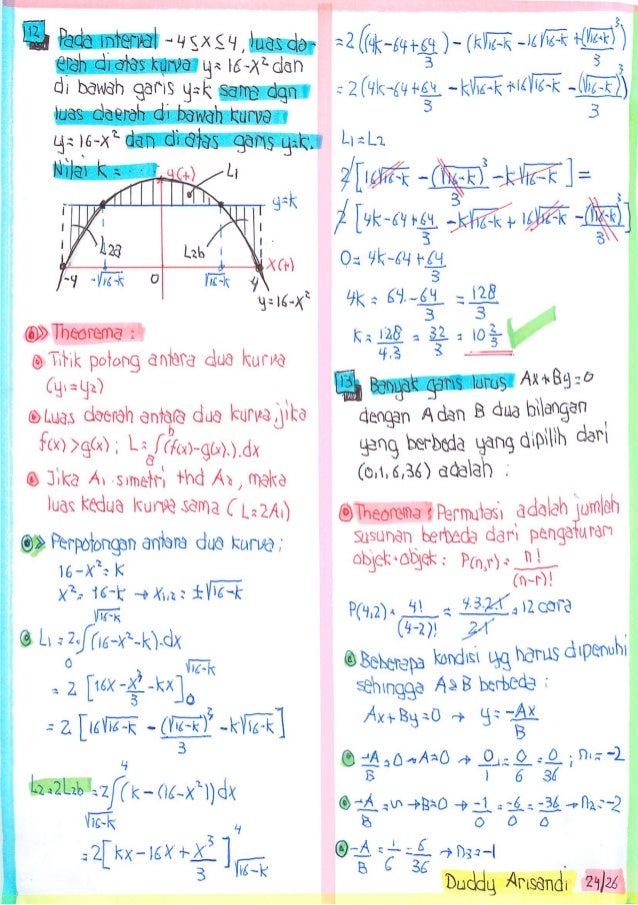 12 Pada interval -4≤x≤4, luas da-
erah di atas kurva y=16-x² dan
di bawah garis y=k sama dgn
luas daerah di bawah kurva
y=16-x² dan di atas garis y=k.
Nilai k = ...
y(+) L1
y=k
L2a L2b
X(+)
-4 -√16-k 0 √16-k 4
y=16-x²
Theorema :
Titik potong antara dua kurva
(y₁=y₂)
Luas daerah antara dua kurva, jika
f(x)>g(x); L=∫ₐᵇ(f(x)-g(x)).dx
Jika A₁ simetri thd A₂, maka
luas kedua kurva sama (L=2A₁)
Perpotongan antara dua kurva;
16-x²=k
x²=16-k → x₁,₂=±√16-k
L₁=2.∫₀^√16-k (16-x²-k).dx
=2[16x-x³/3-kx]₀^√16-k
=2[16√16-k-(√16-k)³/3-k√16-k]
L₂=2L2b=2∫_√16-k^4 (k-(16-x²))dx
=2[kx-16x+x³/3]_√16-k^4
=2((4k-64+64/3)-(k√16-k-16√16-k+(√16-k)³/3)
=2(4k-64+64/3-k√16-k+16√16-k-(√16-k)³/3)
L₁=L₂
2[16√16-k-(√16-k)³/3-k√16-k]=
2[4k-64+64/3-k√16-k+16√16-k-(√16-k)³/3]
0=4k-64+64/3
4k=64-64/3=128/3
k=128/4.3=32/3=10 2/3
13 Banyak garis lurus Ax+By=0
dengan A dan B dua bilangan
yang berbeda yang dipilih dari
(0,1,6,36) adalah :
Theorema : Permutasi adalah jumlah
susunan berbeda dari pengaturan
objek-objek : P(n,r)=n!/(n-r)!
P(4,2)=4!/(4-2)!=4.3.2.1/2.1=12 cara
Beberapa kondisi yg harus dipenuhi
sehingga A&B berbeda :
Ax+By=0 → y=-Ax/B
-A/B=0→A=0 → 0/1=0/6=0/36; n₁=-2
-A/B=∽→B=0 → -1/0=-6/0=-36/0→n₂=-2
-A/B=1/6=6/36 →n₃=-1
Duddy Arisandi 24/26